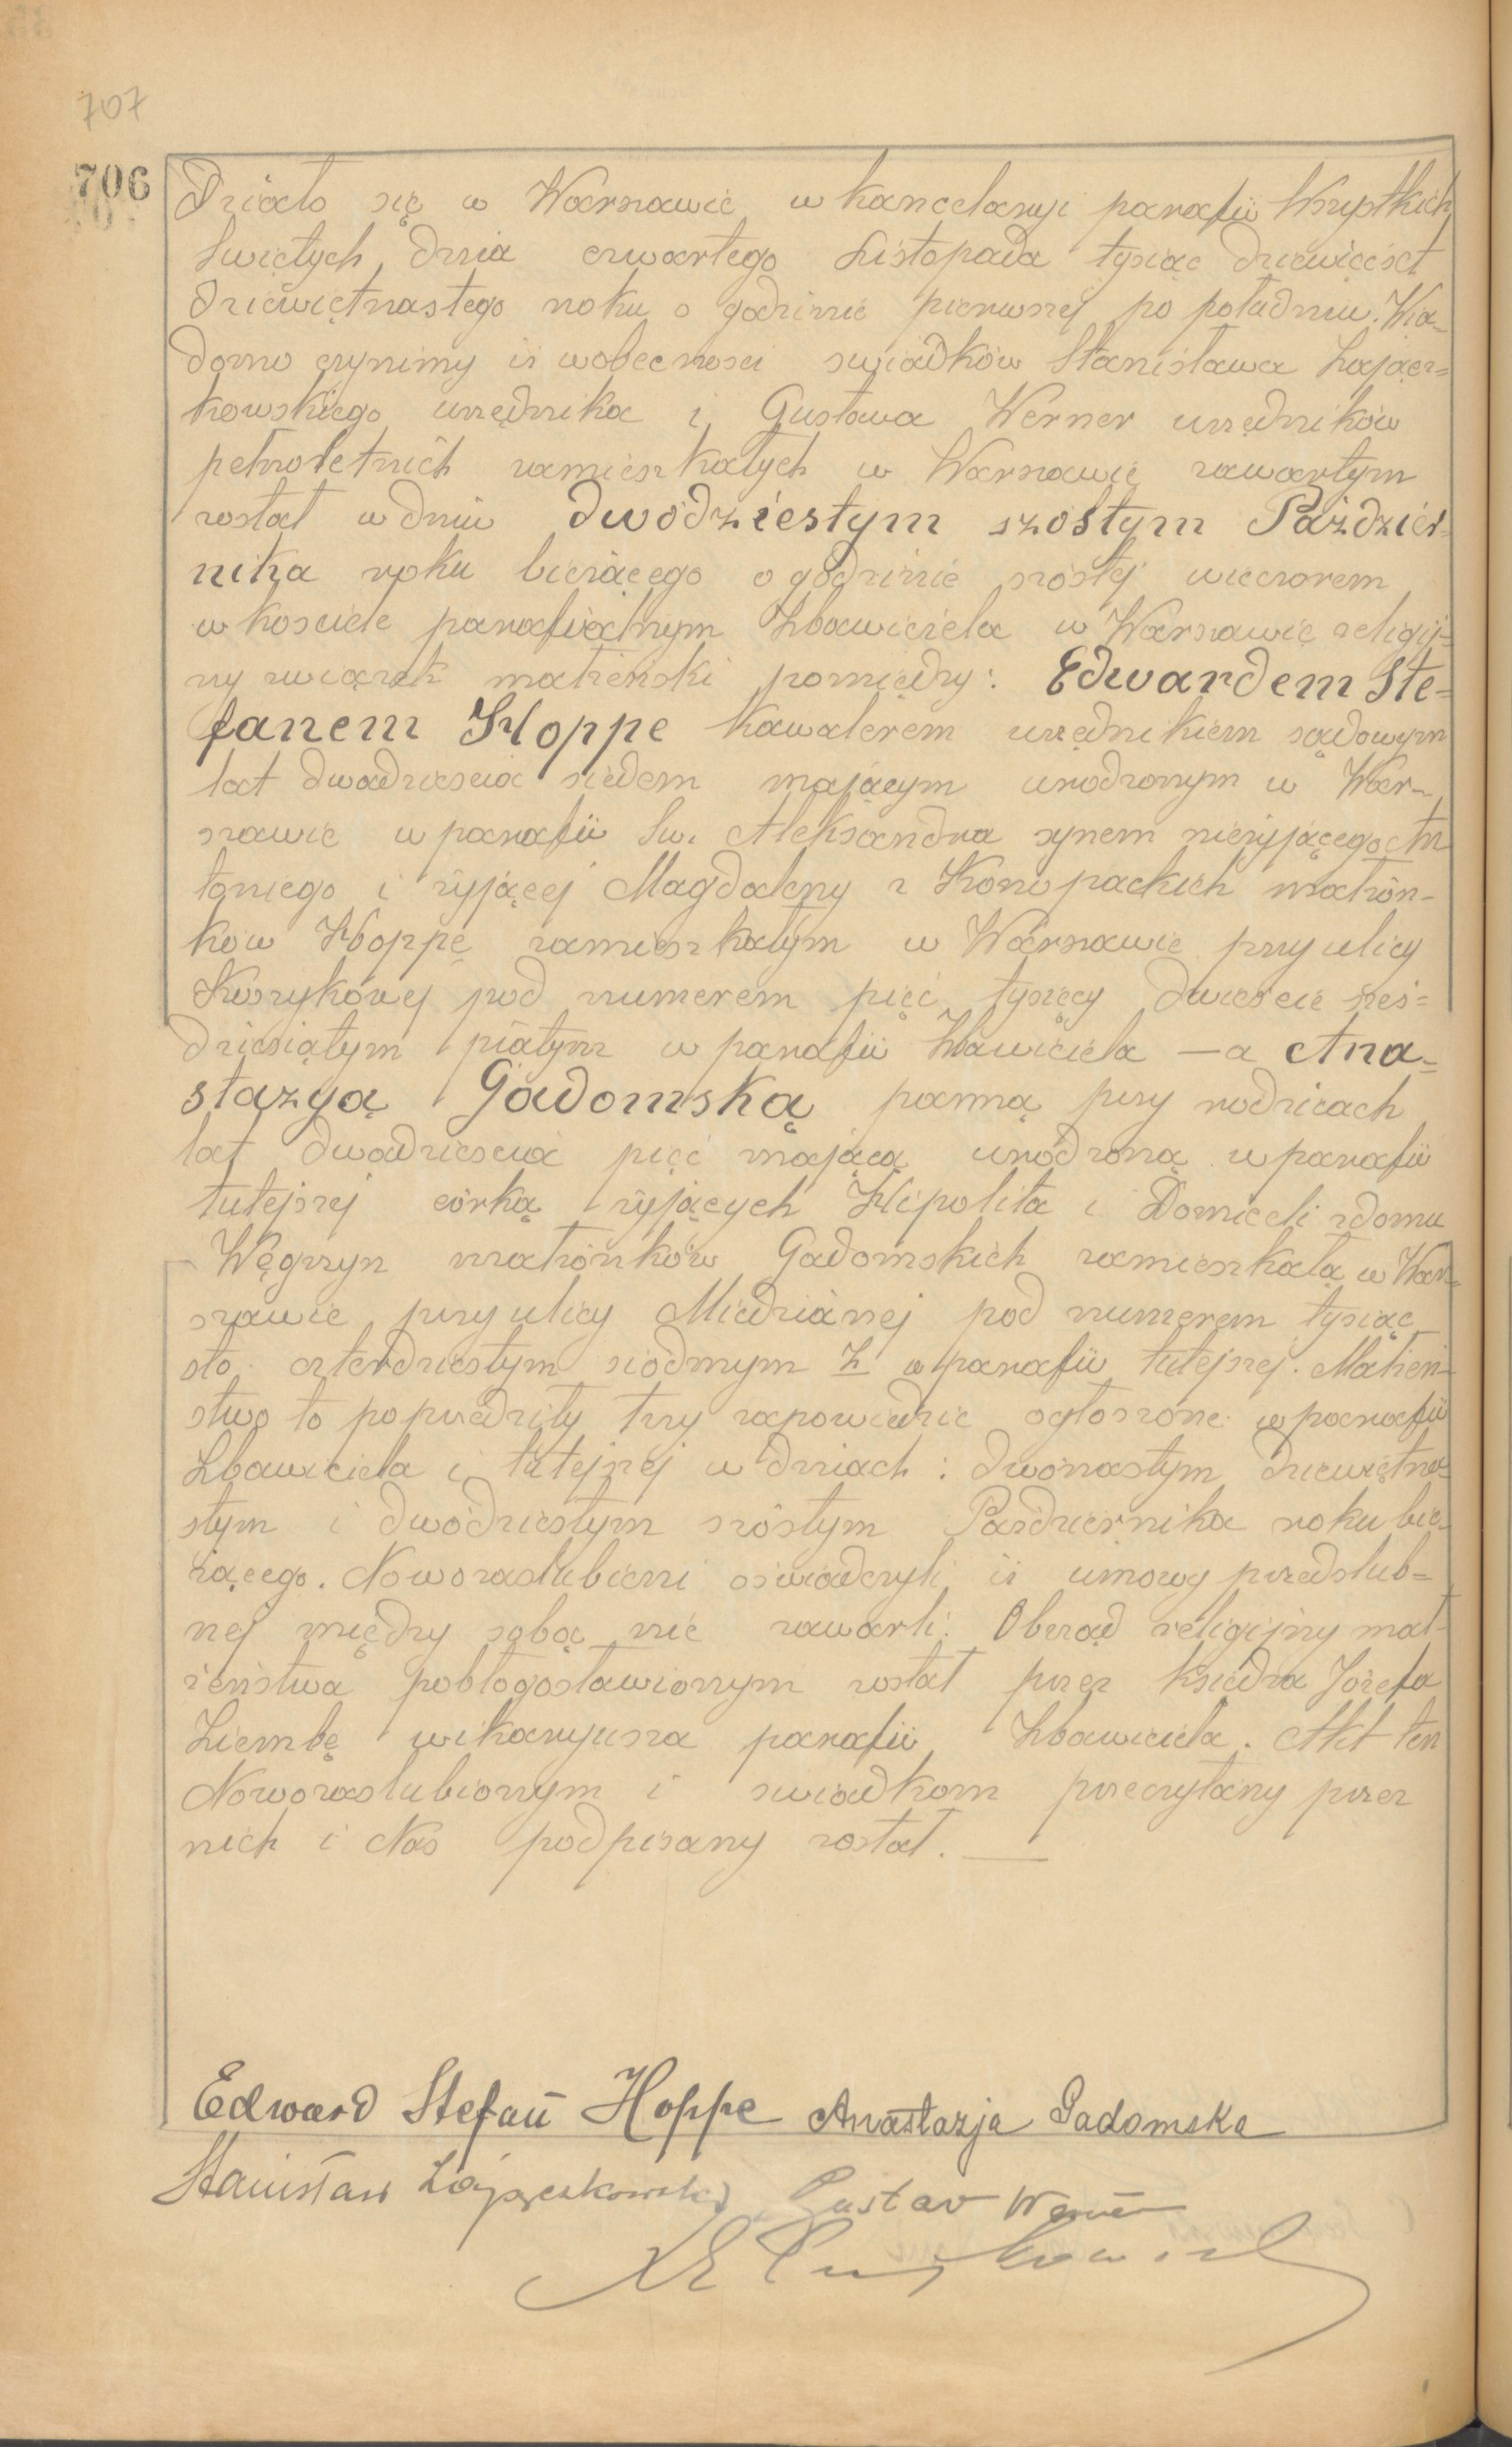 707
706
Działo się w Warszawie w kancelaryi parafii Wszystkich
Świętych dnia czwartego Listopada tysiąc dziewięćset
dziewiętnastego roku o godzinie pierwszej po południu. Wia-
domo czynimy iż wobecności świadków Stanisława Łającz-
kowskiego urzędnika i Gustawa Werner urzędników
pełnoletnich zamieszkałych w Warszawie zawartym
został w dniu dwódziestym szóstym Paździer-
nika roku bieżącego o godzinie szóstej wieczorem
w kosciele parafialnym Zbawiciela w Warszawie religij-
ny związek małżeński pomiędzy: Edwardem Ste-
fanem Hoppe kawalerem urzędnikiem sądowym
lat dwadzieścia siedem mającym urodzonym w War-
szawie w parafii Św. Aleksandra synem nieżyjącego An
toniego i żyjącej Magdaleny z Konopackich małżon-
ków Hoppe zamieszkałym w Warszawie przy ulicy
pod numerem pięć tysięcy dwieście sześ-
dziesiątym piątym w parafii Zbawiciela — a Ana-
stazyą Gadomską panną przy rodzicach
lat dwadzieścia pięć mającą urodzoną w parafii
tutejszej córką żyjących Hipolita i Domiceli z domu
Węgrzyn małżonków Gadomskich zamieszkałą w War-
szawie przy ulicy Miedzianej pod numerem tysiąc
sto czterdziestym siódmym Z w parafii tutejszej. Małżeń-
stwo to poprzedziły trzy zapowiedzie ogłoszone w parafii
Zbawiciela i tutejszej w dniach: dwónastym dziewiętna-
stym i dwódziestym szóstym Października roku bie-
żącego. Nowozaslubieni oświadczyli iż umowy przedslub-
nej między sobą nie zawarli. Obrząd religijny mał-
żeństwa pobłogosławionym został przez księdza Józefa
Ziembę wikaryusza parafii Zbawiciela. Akt ten
Nowozaslubionym i swiadkom przeczytany przez
nich i Nas podpisany został. —
Edward Stefan Hoppe Anastazja Gadomska
Stanisław Łajączkowski Gustav Werner